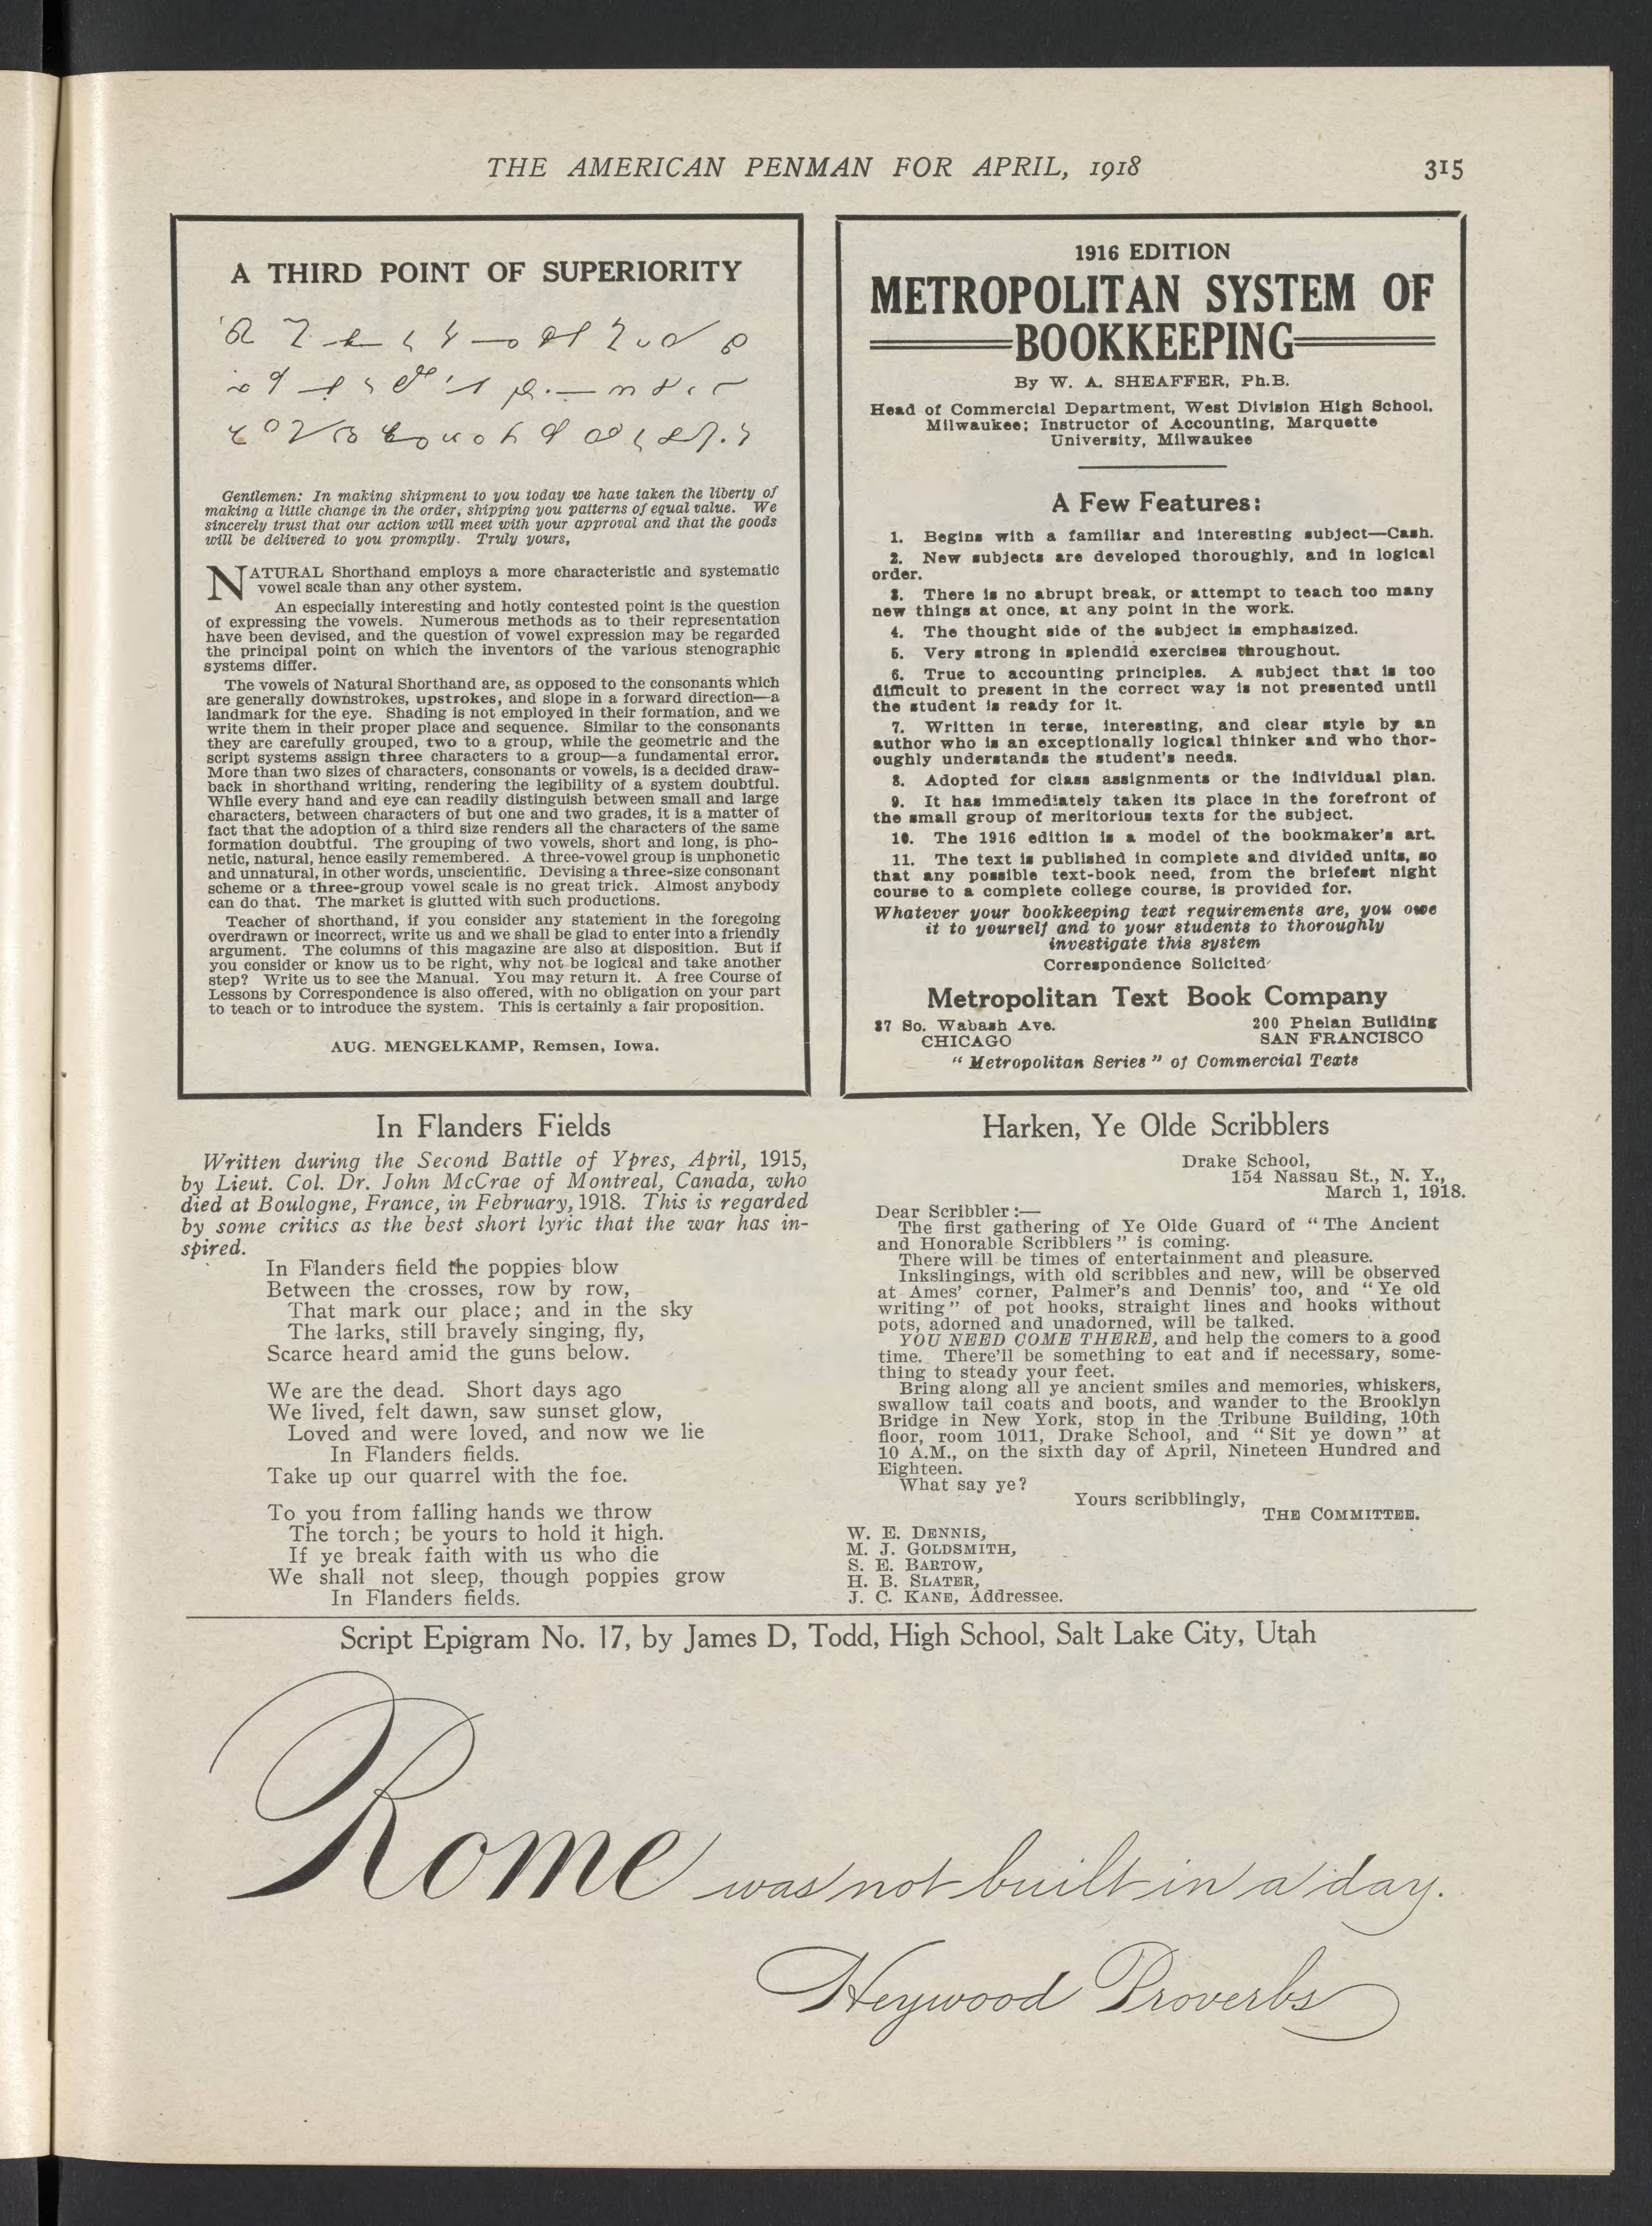 THE AMERICAN PENMAN FOR APRIL, 1918 315
A THIRD POINT OF SUPERIORITY
Gentlemen: In making shipment to you today we have taken the liberty of
making a little change in the order, shipping you patterns of equal value. We
sincerely trust that our action will meet with your approval and that the goods
will be delivered to you promptly. Truly yours,
NATURAL Shorthand employs a more characteristic and systematic
vowel scale than any other system.
An especially interesting and hotly contested point is the question
of expressing the vowels. Numerous methods as to their representation
have been devised, and the question of vowel expression may be regarded
the principal point on which the inventors of the various stenographic
systems differ.
The vowels of Natural Shorthand are, as opposed to the consonants which
are generally downstrokes, upstrokes, and slope in a forward direction—a
landmark for the eye. Shading is not employed in their formation, and we
write them in their proper place and sequence. Similar to the consonants
they are carefully grouped, two to a group, while the geometric and the
script systems assign three characters to a group—a fundamental error.
More than two sizes of characters, consonants or vowels, is a decided draw-
back in shorthand writing, rendering the legibility of a system doubtful.
While every hand and eye can readily distinguish between small and large
characters, between characters of but one and two grades, it is a matter of
fact that the adoption of a third size renders all the characters of the same
formation doubtful. The grouping of two vowels, short and long, is pho-
netic, natural, hence easily remembered. A three-vowel group is unphonetic
and unnatural, in other words, unscientific. Devising a three-size consonant
scheme or a three-group vowel scale is no great trick. Almost anybody
can do that. The market is glutted with such productions.
Teacher of shorthand, if you consider any statement in the foregoing
overdrawn or incorrect, write us and we shall be glad to enter into a friendly
argument. The columns of this magazine are also at disposition. But if
you consider or know us to be right, why not be logical and take another
step? Write us to see the Manual. You may return it. A free Course of
Lessons by Correspondence is also offered, with no obligation on your part
to teach or to introduce the system. This is certainly a fair proposition.
AUG. MENGELKAMP, Remsen, Iowa.
1916 EDITION
METROPOLITAN SYSTEM OF
BOOKKEEPING
By W. A. SHEAFFER, Ph.B.
Head of Commercial Department, West Division High School,
Milwaukee; Instructor of Accounting, Marquette
University, Milwaukee
A Few Features:
1. Begins with a familiar and interesting subject—Cash.
2. New subjects are developed thoroughly, and in logical
order.
3. There is no abrupt break, or attempt to teach too many
new things at once, at any point in the work.
4. The thought side of the subject is emphasized.
5. Very strong in splendid exercises throughout.
6. True to accounting principles. A subject that is too
difficult to present in the correct way is not presented until
the student is ready for it.
7. Written in terse, interesting, and clear style by an
author who is an exceptionally logical thinker and who thor-
oughly understands the student's needs.
8. Adopted for class assignments or the individual plan.
9. It has immediately taken its place in the forefront of
the small group of meritorious texts for the subject.
10. The 1916 edition is a model of the bookmaker's art.
11. The text is published in complete and divided units, so
that any possible text-book need, from the briefest night
course to a complete college course, is provided for.
Whatever your bookkeeping text requirements are, you owe
it to yourself and to your students to thoroughly
investigate this system
Correspondence Solicited
Metropolitan Text Book Company
37 So. Wabash Ave. 200 Phelan Building
CHICAGO SAN FRANCISCO
"Metropolitan Series" of Commercial Texts
In Flanders Fields
Written during the Second Battle of Ypres, April, 1915,
by Lieut. Col. Dr. John McCrae of Montreal, Canada, who
died at Boulogne, France, in February, 1918. This is regarded
by some critics as the best short lyric that the war has in-
spired.
In Flanders field the poppies blow
Between the crosses, row by row,
That mark our place; and in the sky
The larks, still bravely singing, fly,
Scarce heard amid the guns below.
We are the dead. Short days ago
We lived, felt dawn, saw sunset glow,
Loved and were loved, and now we lie
In Flanders fields.
Take up our quarrel with the foe.
To you from falling hands we throw
The torch; be yours to hold it high.
If ye break faith with us who die
We shall not sleep, though poppies grow
In Flanders fields.
Harken, Ye Olde Scribblers
Drake School,
154 Nassau St., N. Y.,
March 1, 1918.
Dear Scribbler:—
The first gathering of Ye Olde Guard of "The Ancient
and Honorable Scribblers" is coming.
There will be times of entertainment and pleasure.
Inkslingings, with old scribbles and new, will be observed
at Ames' corner, Palmer's and Dennis' too, and "Ye old
writing" of pot hooks, straight lines and hooks without
pots, adorned and unadorned, will be talked.
YOU NEED COME THERE, and help the comers to a good
time. There'll be something to eat and if necessary, some-
thing to steady your feet.
Bring along all ye ancient smiles and memories, whiskers,
swallow tail coats and boots, and wander to the Brooklyn
Bridge in New York, stop in the Tribune Building, 10th
floor, room 1011, Drake School, and "Sit ye down" at
10 A.M., on the sixth day of April, Nineteen Hundred and
Eighteen.
What say ye?
Yours scribblingly,
THE COMMITTEE.
W. E. DENNIS,
M. J. GOLDSMITH,
S. E. BARTOW,
H. B. SLATER,
J. C. KANE, Addressee.
Script Epigram No. 17, by James D, Todd, High School, Salt Lake City, Utah
Rome was not built in a day.
Heywood Proverbs